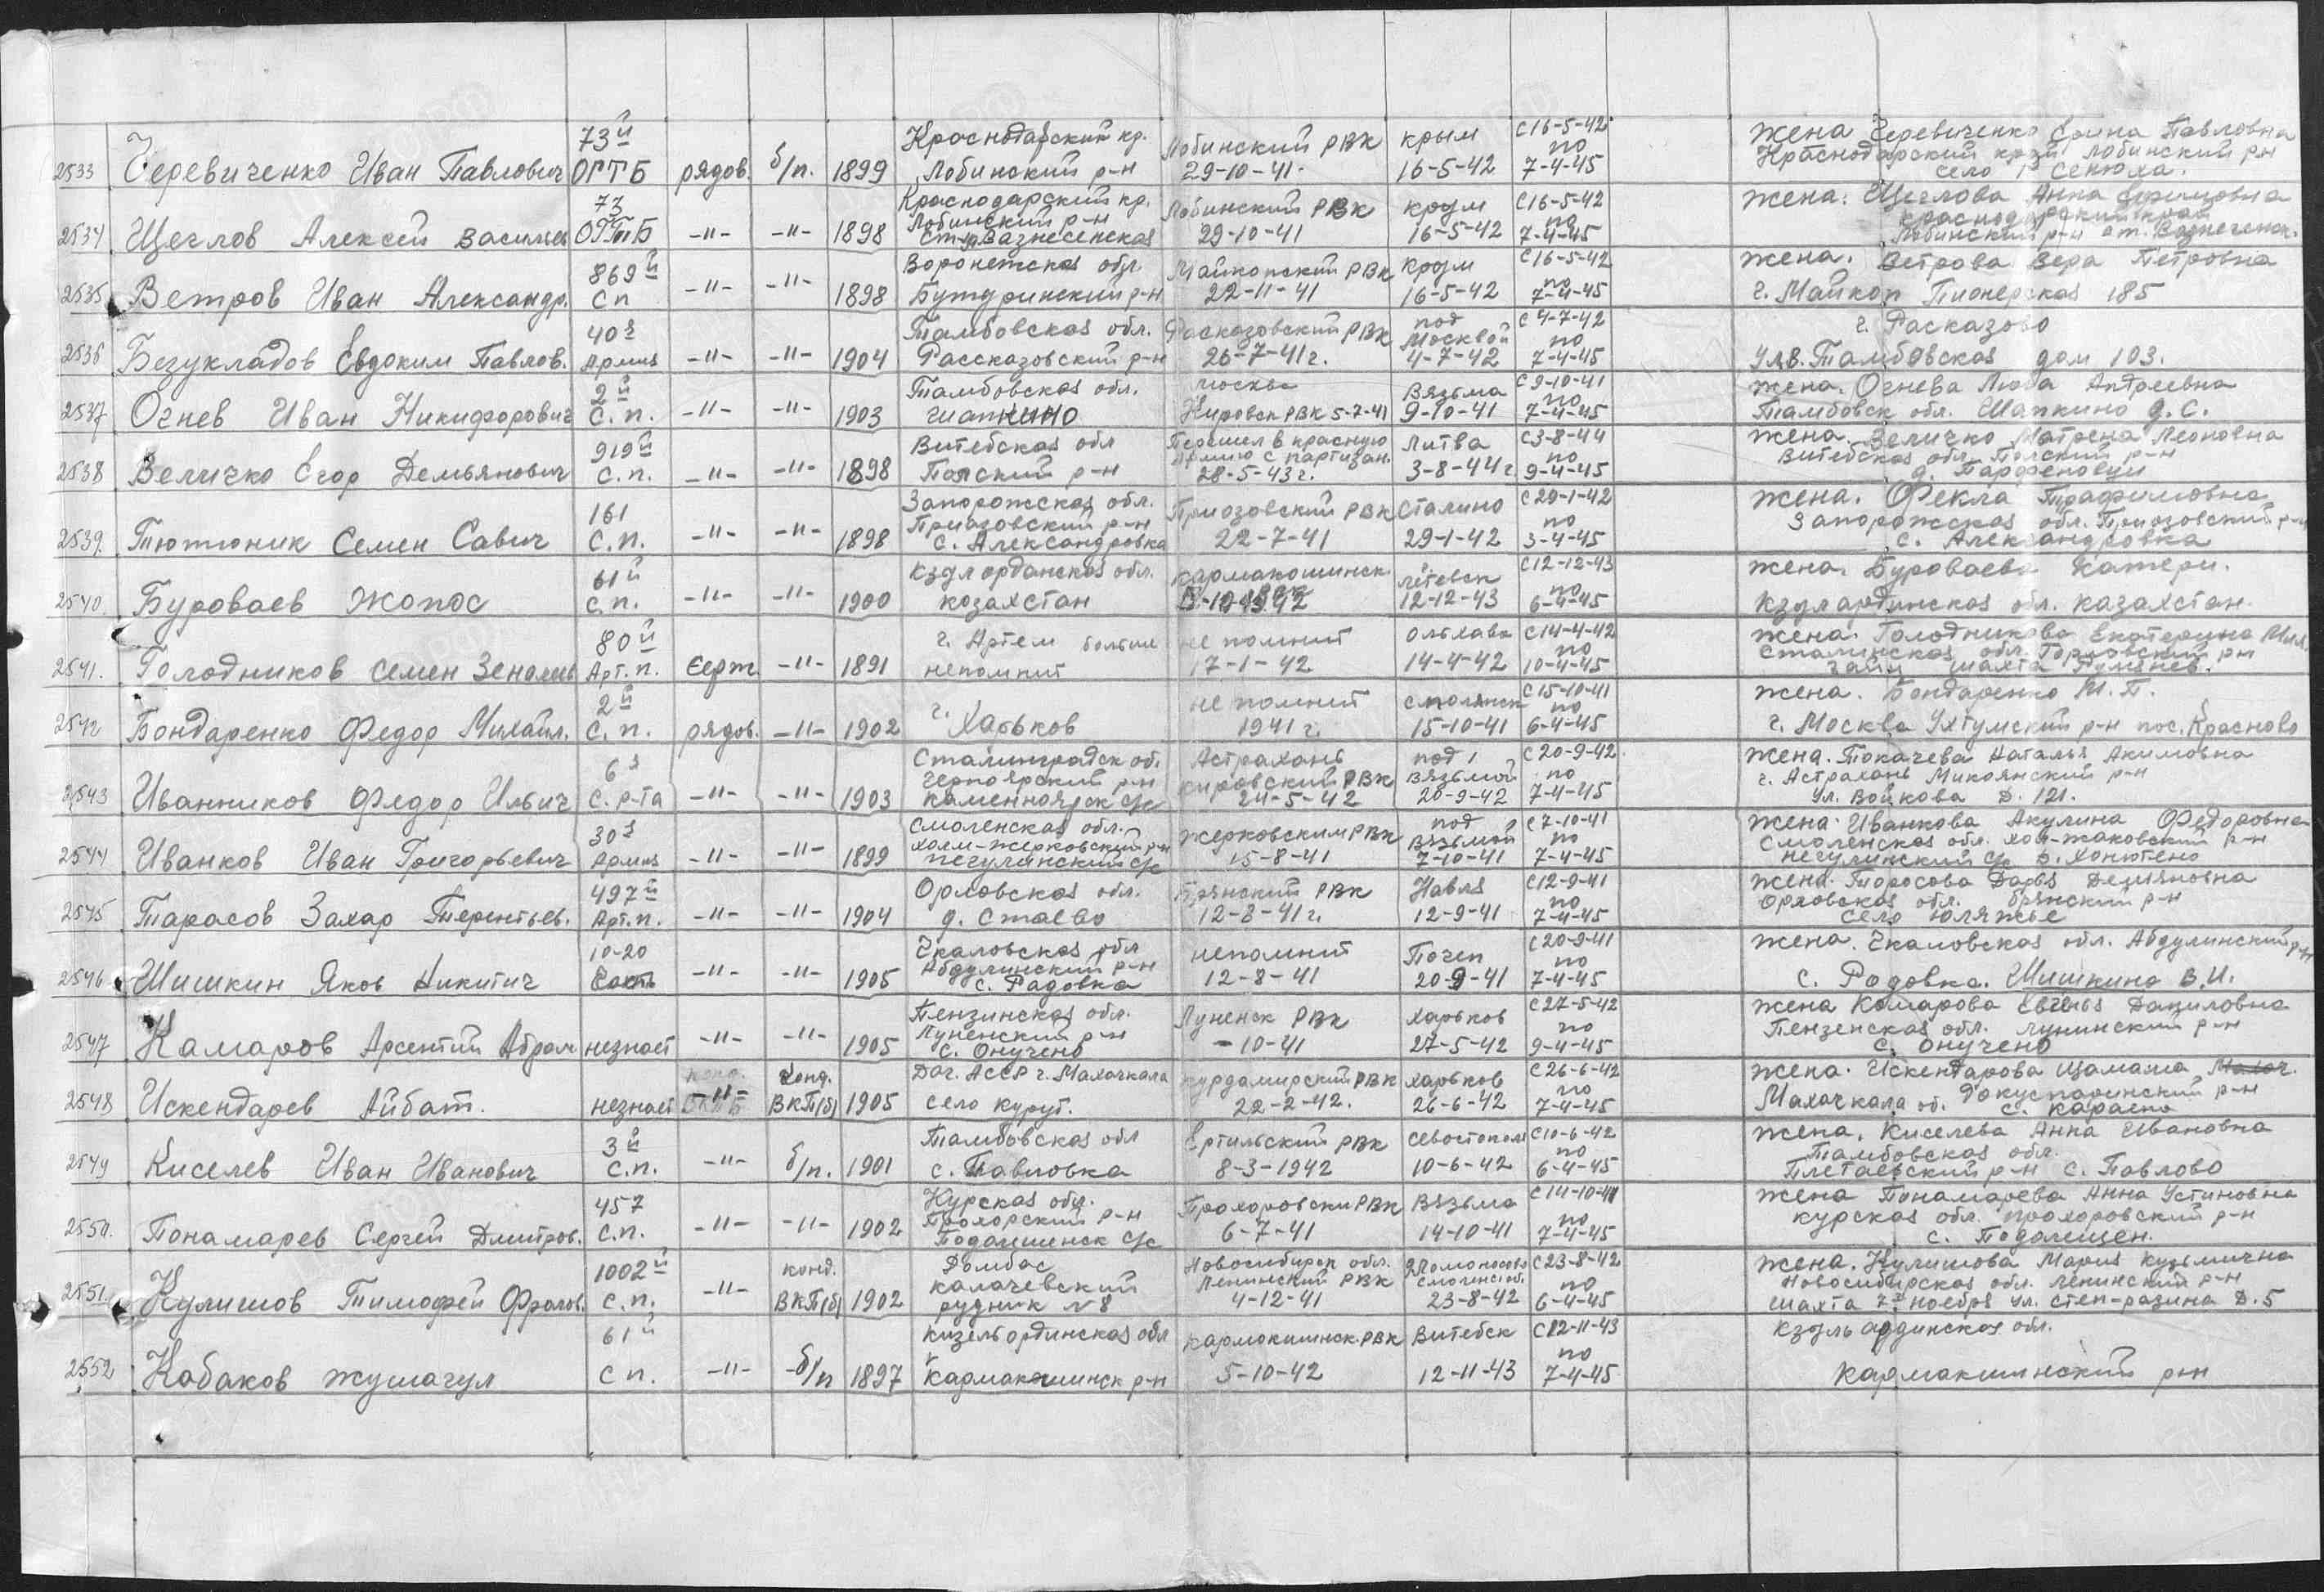 2533 Черевиченко Иван Павлович 73й ОГТБ рядов. б/п. 1899 Краснодарский кр. Лобинский р-н Лобинский РВК 29-10-41. Крым 16-5-42 с16-5-42 по 7-4-45 Жена Черевиченко Ерина Павловна Краснодарский край Лобинский р-н село Сенюха.
2534 Щеглов Алексей Васильев 73 ОГТБ -"- -"- 1898 Краснодарский кр. Лобинский р-н Вазнесенская Лобинский РВК 29-10-41 крым 16-5-42 с16-5-42 по 7-4-45 Жена: Щеглова Анна Ефимовна краснодарский край Лобинский р-н ст.
2535 Ветров Иван Александр. 869й сп -"- -"- 1898 Воронежская обл. Бутуринский р-н Майкопский РВК 22-11-41 Крым 16-5-42 с16-5-42 по 7-4-45 Жена. Ветрова Вера Петровна г. Майкоп Пионерская 185
2536 Безукладов Евдоким Павлов. 40я Армия -"- -"- 1904 Тамбовская обл. Рассказовский р-н Расказовский РВК 26-7-41г. под Москвой 4-7-42 с 4-7-42 по 7-4-45 г. Расказово Тамбовская дом 103.
2537 Огнев Иван Никифорович 2й с.п. -"- -"- 1903 Тамбовская обл. Москва Кировск РВК 5-7-41 Вязьма 9-10-41 с 9-10-41 по 7-4-45 Жена. Огнева Люба Андреевна Тамбовск обл. Шапкино д.с.
2538 Величко Егор Демьянович 919й с.п. -"- -"- 1898 Витебская обл р-н Перешел в красную армию с партизан. 28-5-43г. Литва 3-8-44г. с3-8-44 по 9-4-45 Жена. Величко Матрена Леоновна Витебская обл. р-н
2539. Тютюник Семен Савич 161 с.п. -"- -"- 1898 Запорожская обл. Приазовский р-н с. Александровка Приозовский РВК 22-7-41 Сталино 29-1-42 с29-1-42 по 3-4-45 Жена. Фекла Трафимовна Запорожская обл. Приозовский р-н с. Александровка
2540. Буроваев Жопос 61й с.п. -"- -"- 1900 Кзыл орданская обл. козахстан кармакошинск. 12-12-43 с12-12-43 по 6-4-45 Жена. Буроваева Катери. Кзылардинская обл. казахстан.
2541. Голодников Семен 80й Арт.п. Серж -"- 1891 г. Артем больше непомнит не помнит 17-1-42 14-4-42 с14-4-42 по 10-4-45 Жена. Голодникова Екатерина Сталинская обл. Горловский р-н шахта
2542 Бондаренко Федор Михайл. 2й с.п. рядов. -"- 1902 г. Харьков не помнит 1941г. 15-10-41 с15-10-41 по 6-4-45 Жена. Бондаренко М.П. г. Москва Ухтумский р-н пос. Красново
2543 Иванников Федор Ильич 6я с.р-та -"- -"- 1903 Сталинградск об. Черноярский р-н каменноярск с/с Астрахань кировский РВК 24-5-42 под Вязьмой 20-9-42 с 20-9-42. по 7-4-45 Жена. Токачева Наталья Акимовна г. Астрахань Микоянский р-н ул. Войкова д. 121.
2544 Иванков Иван Григорьевич 30я Армия -"- -"- 1899 Смоленская обл. Холм-жерковский р-н Нечулинский с/с Жерковским РВК 15-8-41 под Вязьмой 7-10-41 с 7-10-41 по 7-4-45 Жена. Иванкова Акулина Федоровна Смоленская обл. р-н с/с д. Хонютено
2545 Тарасов Захар Терентьев. 497й Арт.п. -"- -"- 1904 Орловская обл. д. Стаево Брянский РВК 12-8-41г. Навля 12-9-41 с12-9-41 по 7-4-45 Жена. Торосова Дарья Демяновна Орловская обл. брянский р-н село
2546 Шишкин Яков Никитич 10-20 -"- -"- 1905 Чкаловская обл Абдулинский р-н с. Радовка непомнит 12-8-41 Почеп 20-9-41 с20-9-41 по 7-4-45 Жена. Чкаловская обл. Абдулинский р-н с. Родовка. Шишкина В.И.
2547 Камаров Арсентий Абрам незнает -"- -"- 1905 Пензинская обл. Луненский р-н с. Онучено Луненск РВК -10-41 Харьков 27-5-42 с27-5-42 по 9-4-45 Жена Комарова Даниловна Пензенская обл. лунинский р-н с. онучено
2548 Искендарев Айбат. незнает -"- Конд. ВКП(б) 1905 Даг. АССР г. Махачкала село Куруг. Курдамирский РВК 22-2-42. Харьков 26-6-42 с26-6-42 по 7-4-45 Жена. Искендарова Цамама Махачкала об. Докуспаринский р-н с.
2549 Киселев Иван Иванович 3й с.п. -"- б/п. 1901 Тамбовская обл с. Павловка Ертильский РВК 8-3-1942 Севостополь 10-6-42 с10-6-42 по 6-4-45 Жена. Киселева Анна Ивановна Тамбовская обл. р-н с. Павлово
2550. Понамарев Сергей Дмитров. 457 с.п. -"- -"- 1902 Курская обл. Прохорский р-н с/с Прохоровски РВК 6-7-41 Вязьма 14-10-41 с14-10-41 по 7-4-45 Жена Понамарева Анна Устиновна Курская обл. прохоровский р-н с.
2551 Кулишов Тимофей Фролов. 1002й с.п. -"- конд. ВКП(б) 1902 Домбас калачевский рудник №8 Новосибирск обл. Ленинский РВК 4-12-41 23-8-42 с23-8-42 по 6-4-45 Жена. Кулишова Мария Кузьмична Новосибирская обл. Ленинский р-н шахта 7е ноября ул. степ-разина д. 5
2552 Кабаков жумагул 61й сп. -"- б/п 1897 Кизельординская обл Кармакчинск р-н кармокшинск. РВК 5-10-42 Витебск 12-11-43 с12-11-43 по 7-4-45 Кзыльардинская обл. Кармакшинский р-н